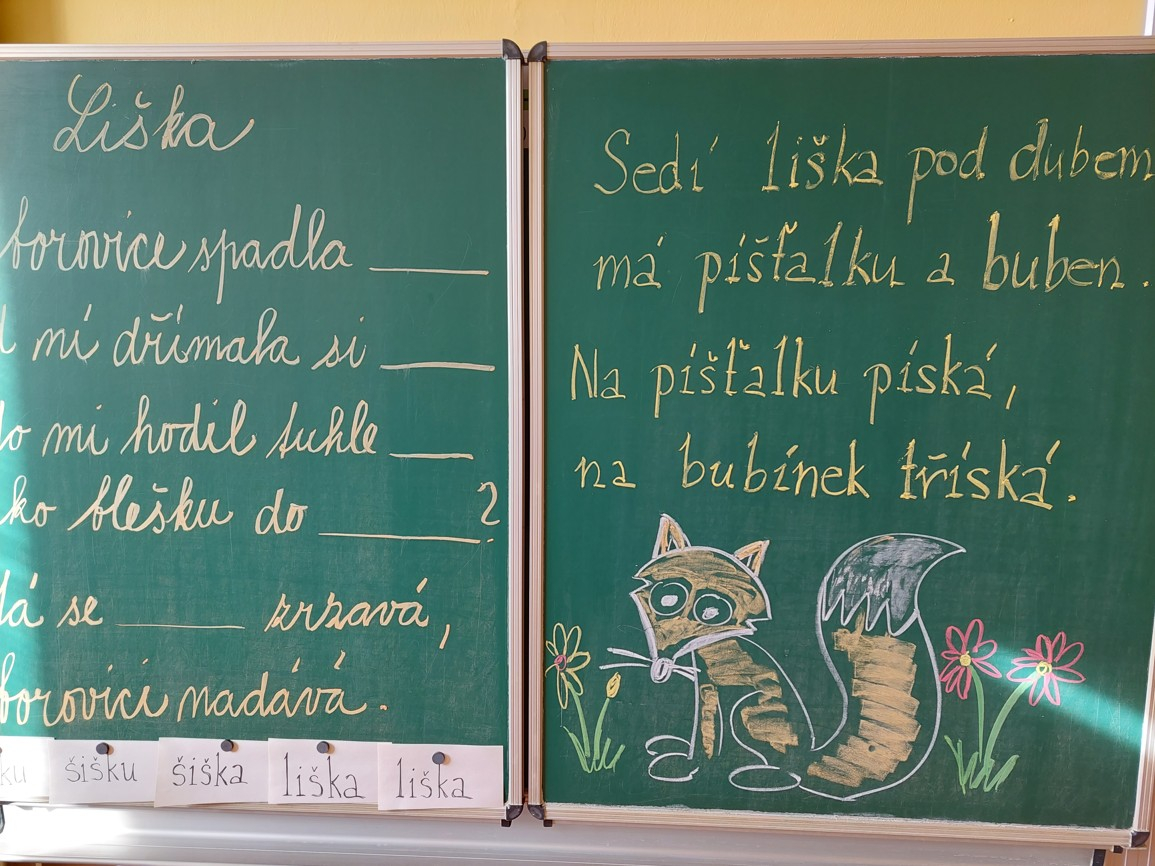 Liška
borovice spadla ____
ní dřímala si ____
mi hodil tuhle ____
ko blešku do ____?
se ____ zrzavá,
borovici nadává.
ku šišku šiška liška liška
Sedí liška pod dubem
má píšťalku a buben.
Na píšťalku píská,
na bubínek tříská.